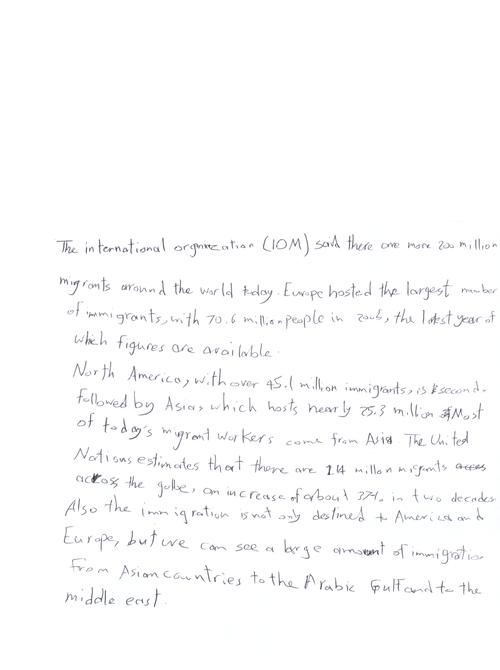 The international orgnazation (IOM) said there are more 200 million
migrants around the world today. Europe hosted the largest number
of immigrants, with 70.6 million people in 2005, the latest year of
which figures are available.
North America, with over 45.1 million immigrants, is second.
followed by Asia, which hosts nearly 25.3 million Most
of today's migrant workers come from Asia The United
Nations estimates that there are 214 millon migrants
across the golbe, an increase of about 37% in two decades
Also the immigration is not only destined to America and
Europe, but we can see a large amount of immigration
From Asian countries to the Arabic Gulf and to the
middle east.